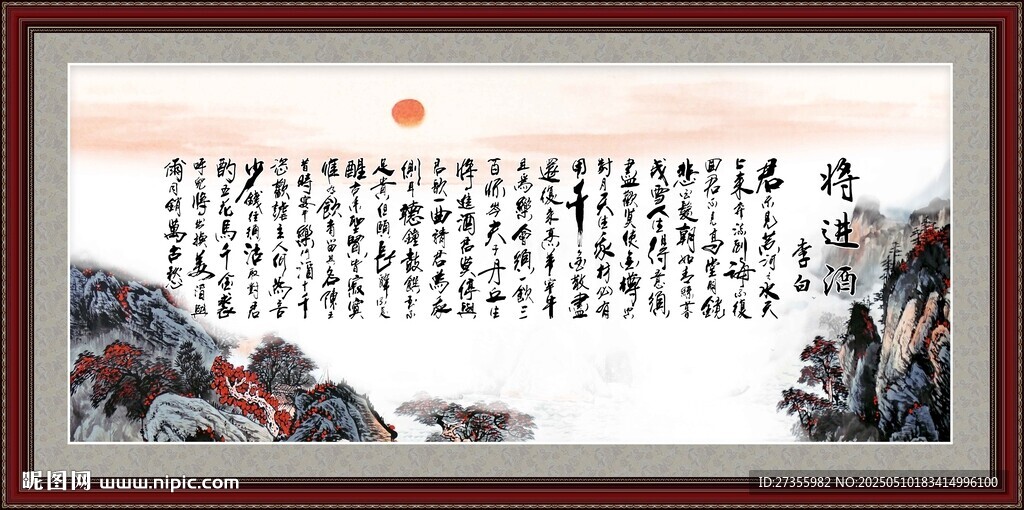 将进酒
李白
君不见黄河之水天
上来奔流到海不復
回君不见高堂明鏡
悲白髮朝如青絲暮
成雪人生得意須
盡歡莫使金樽空
對月天生我材必有
用千金散盡
還復来烹羊宰牛
且為樂會須一飲三
百杯岑夫子丹丘生
將進酒君莫停與
君歌一曲請君為我
側耳聽鐘鼓饌玉不
足貴但願長醉不
醒古来聖賢皆寂寞
惟有飲者留其名陳王
昔時宴平樂斗酒十千
恣歡謔主人何為言
少錢徑須沽取對君
酌五花馬千金裘
呼兒將出换美酒與
爾同銷萬古愁
昵图网 www.nipic.com
ID:27355982 NO:20250510183414996100